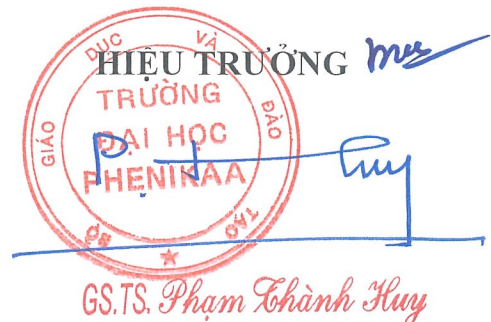 HIỆU TRƯỞNG
BỘ GIÁO DỤC VÀ ĐÀO TẠO
TRƯỜNG
ĐẠI HỌC
PHENIKAA
GS.TS. Phạm Thành Huy